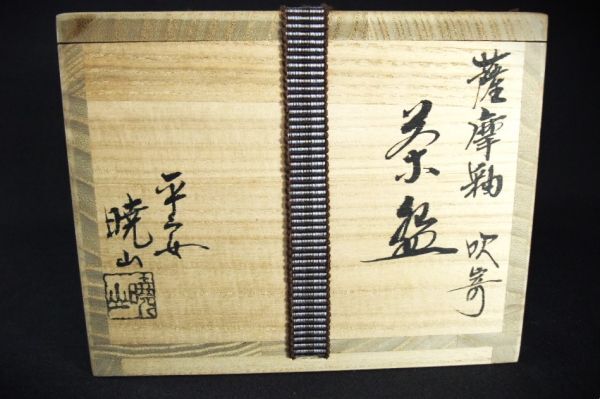 薩摩釉 吹寄
茶盌
平安
暁山